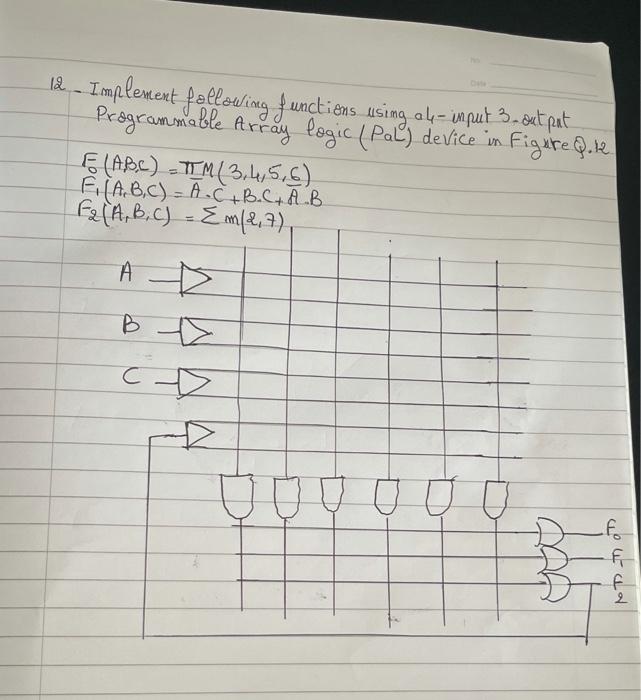 No:
Date:
12 - Implement following functions using a 4-input 3-output
Programmable Array logic (PaL) device in Figure Q.12
F₀(A,B,C) = πM(3,4,5,6)
F₁(A,B,C) = A̅.C+B.C+A̅.B
F₂(A,B,C) = Σm(2,7)
A
B
C
F₀
F₁
F₂